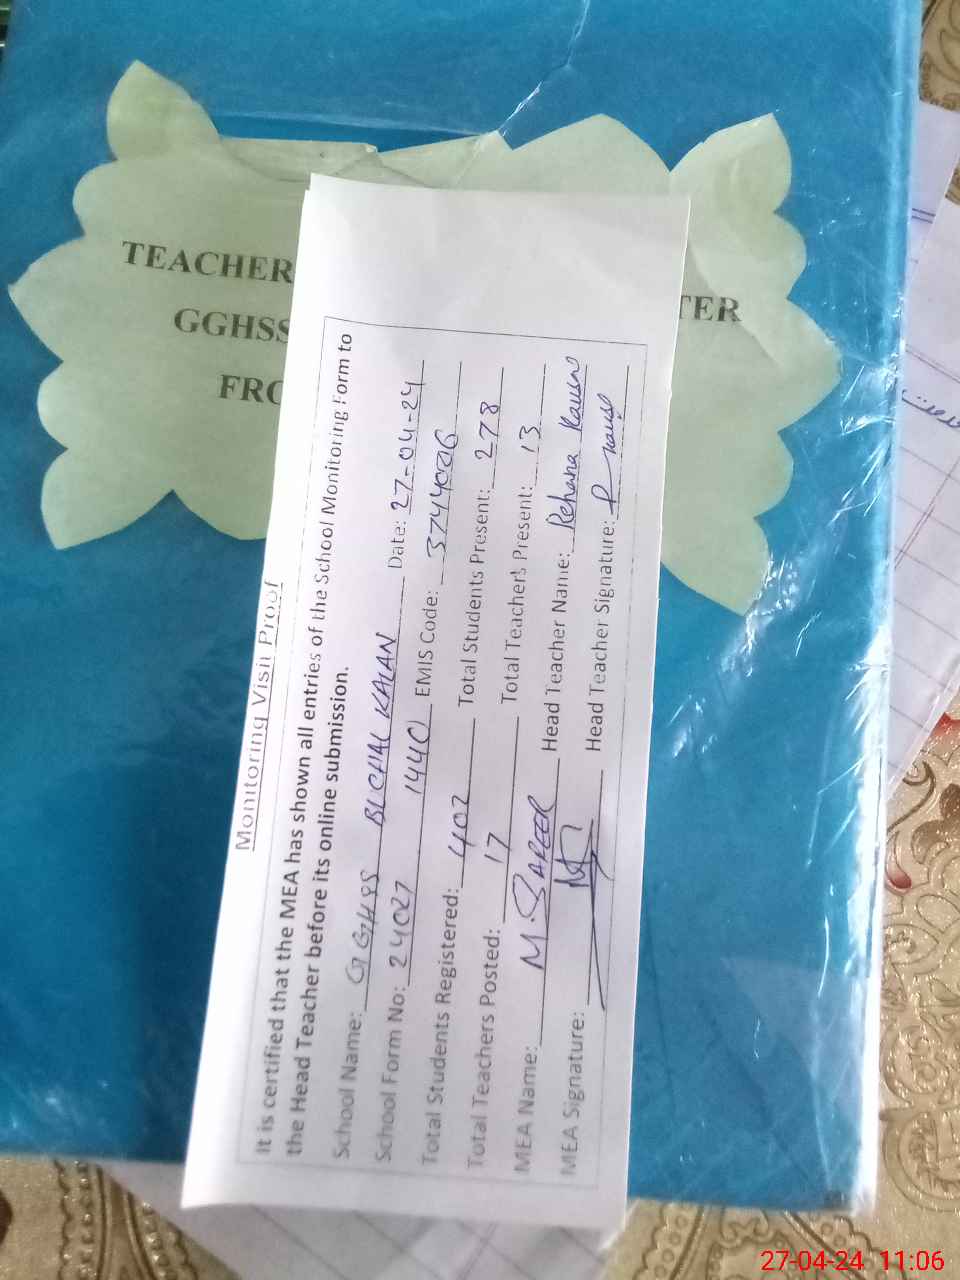 TEACHER
TER
GGHSS
FRO
Monitoring Visit Proof
It is certified that the MEA has shown all entries of the School Monitoring Form to
the Head Teacher before its online submission.
School Name: GGHSS BUCHAL KALAN Date: 27-04-24
School Form No: 24027 14401 EMIS Code:
Total Students Registered: 402 Total Students Present: 278
Total Teachers Posted: 17 Total Teachers Present: 13
MEA Name: M. Head Teacher Name: Rehana Kausar
MEA Signature: Head Teacher Signature:
27-04-24 11:06